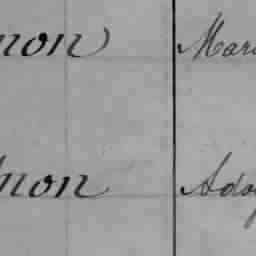 non Mari
mon Ado